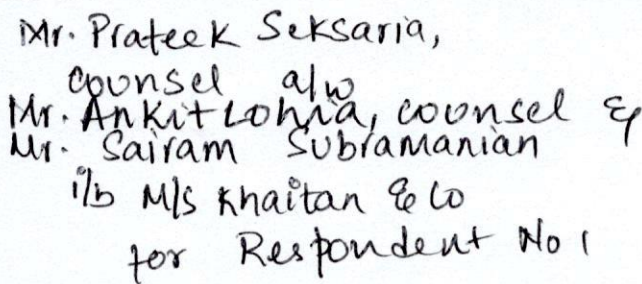 Mr. Prateek Seksaria,
counsel a/w
Mr. Ankit Lohia, counsel &
Mr. Sairam Subramanian
i/b M/s Khaitan & Co
for Respondent No 1